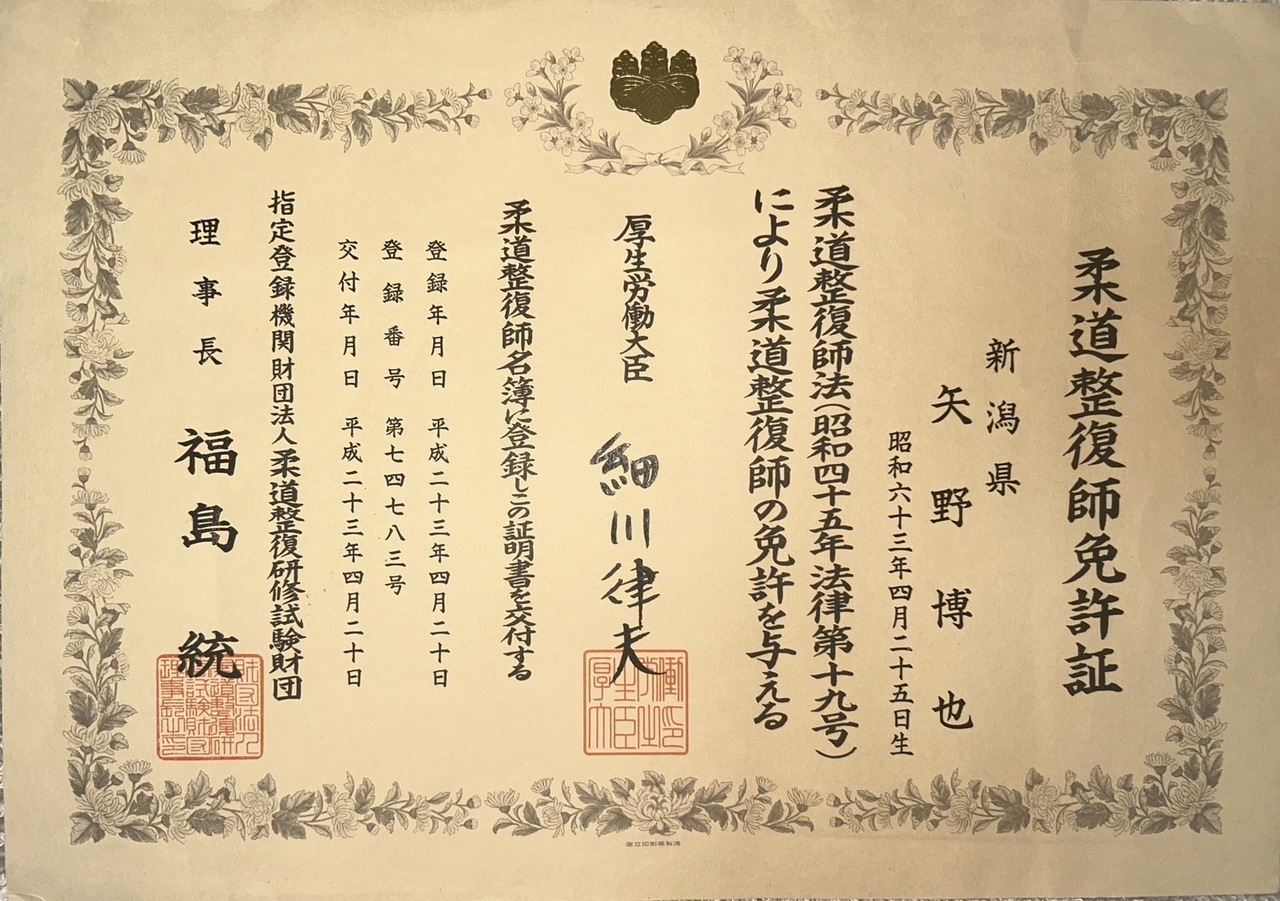 柔道整復師免許証
新潟県
矢野博也
昭和六十三年四月二十五日生
柔道整復師法(昭和四十五年法律第十九号)
により柔道整復師の免許を与える
厚生労働大臣 細川律夫
柔道整復師名簿に登録しこの証明書を交付する
登録年月日 平成二十三年四月二十日
登録番号 第七四七八三号
交付年月日 平成二十三年四月二十日
指定登録機関財団法人柔道整復研修試験財団
理事長 福島統
国立印刷局製造